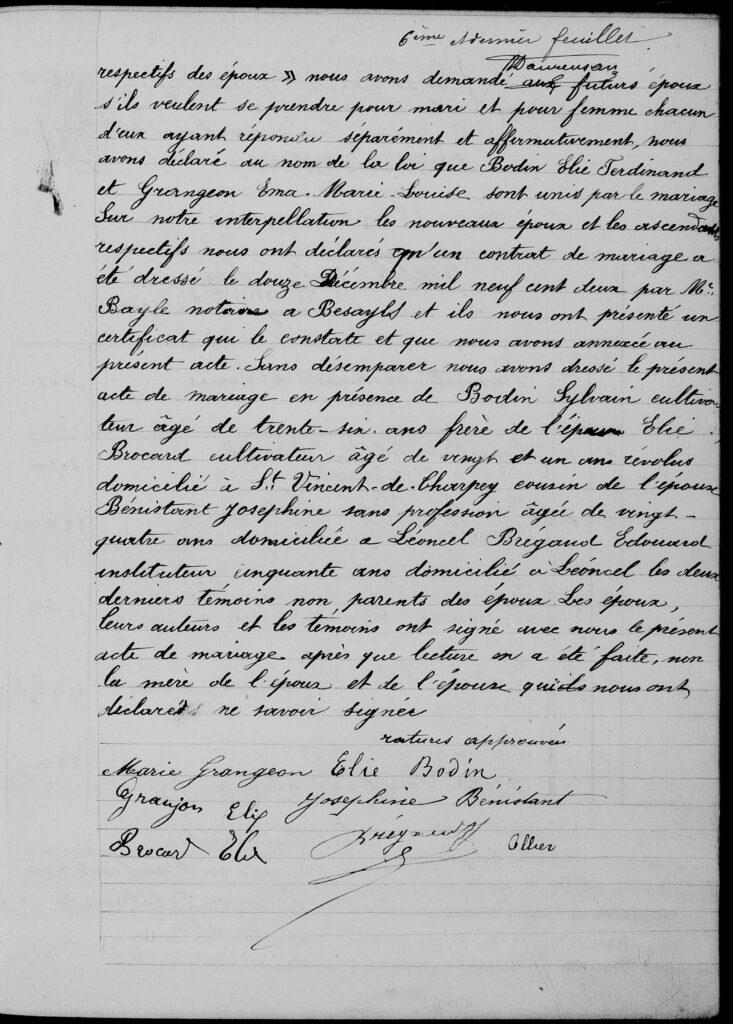 6ème & dernier feuillet.
respectifs des époux » nous avons demandé aux futurs époux
s'ils veulent se prendre pour mari et pour femme chacun
d'eux ayant répondu séparément et affirmativement, nous
avons déclaré au nom de la loi que Bodin Elie Ferdinand
et Grangeon Ema Marie-Louise sont unis par le mariage
Sur notre interpellation les nouveaux époux et les ascendants
respectifs nous ont déclarés qu'un contrat de mariage a
été dressé le douze Décembre mil neuf cent deux par Me.
Bayle notaire a Besayes et ils nous ont présenté un
certificat qui le constate et que nous avons annexée au
présent acte. Sans désemparer nous avons dressé le présent
acte de mariage en présence de Bodin Sylvain cultiva-
teur âgé de trente-six ans frère de l'époux Elie
Brocard cultivateur âgé de vingt et un ans revolus
domicilié à St. Vincent-de-Charpey cousin de l'épouse
Bénistant Josephine sans profession âgée de vingt-
quatre ans domiciliée a Léoncel Brégaud Edouard
instituteur cinquante ans domicilié à Léoncel les deux
derniers témoins non parents des époux. Les époux,
leurs auteurs et les témoins ont signé avec nous le présent
acte de mariage après que lecture en a été faite, non
la mère de l'époux et de l'épouse qui nous ont
déclarés ne savoir signer
ratures approuvées
Marie Grangeon Elie Bodin
Granjon Elie Josephine Bénistant
Brocard Elie Ollier